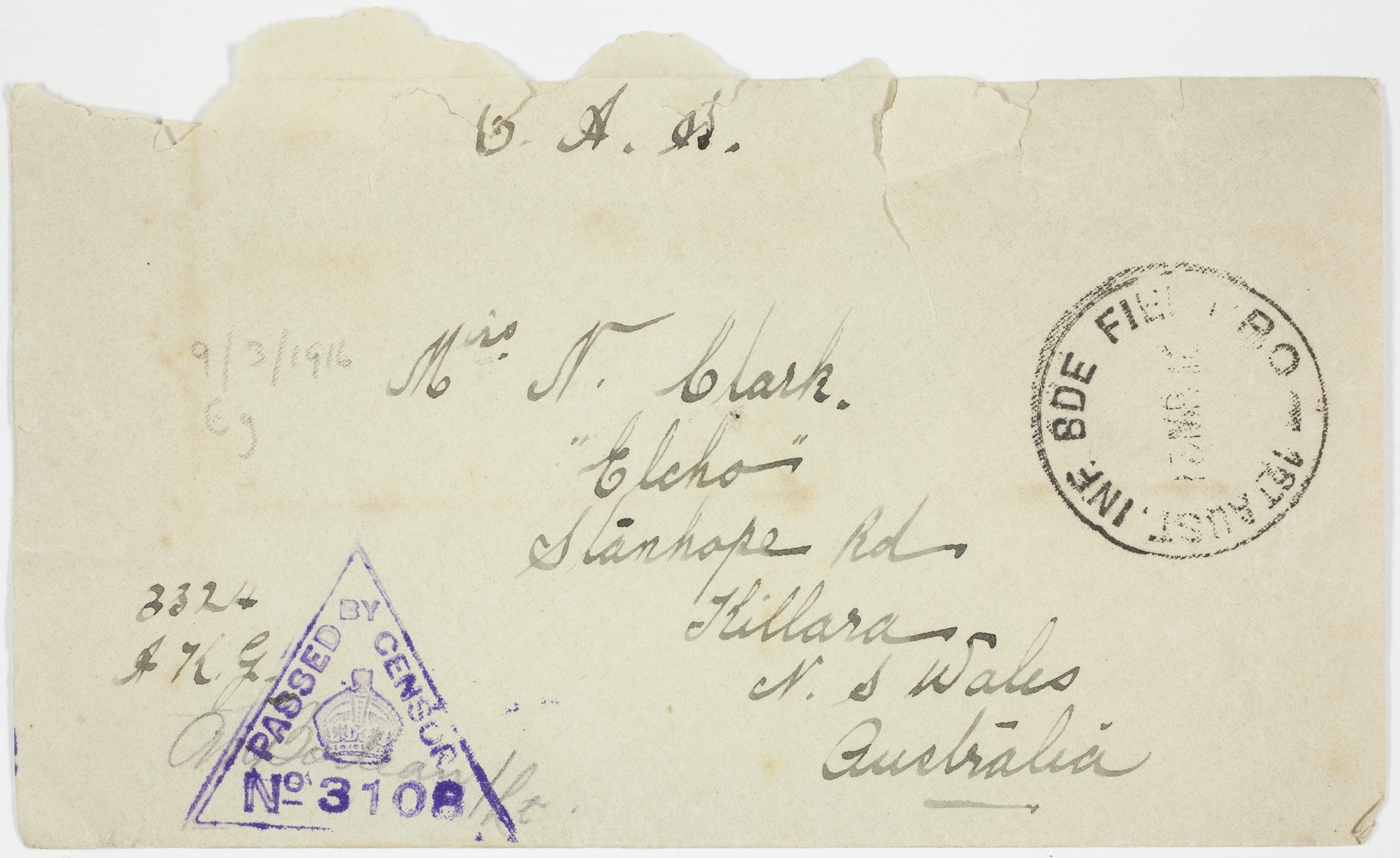 O. A. S.
9/3/1916
Eg
Mrs. N. Clark.
"Elcho"
Stanhope Rd
Killara
N. S Wales
Australia
3324
A K G.
PASSED BY CENSOR
No. 3108
1ST AUST. INF. BDE FIELD P.O
MR